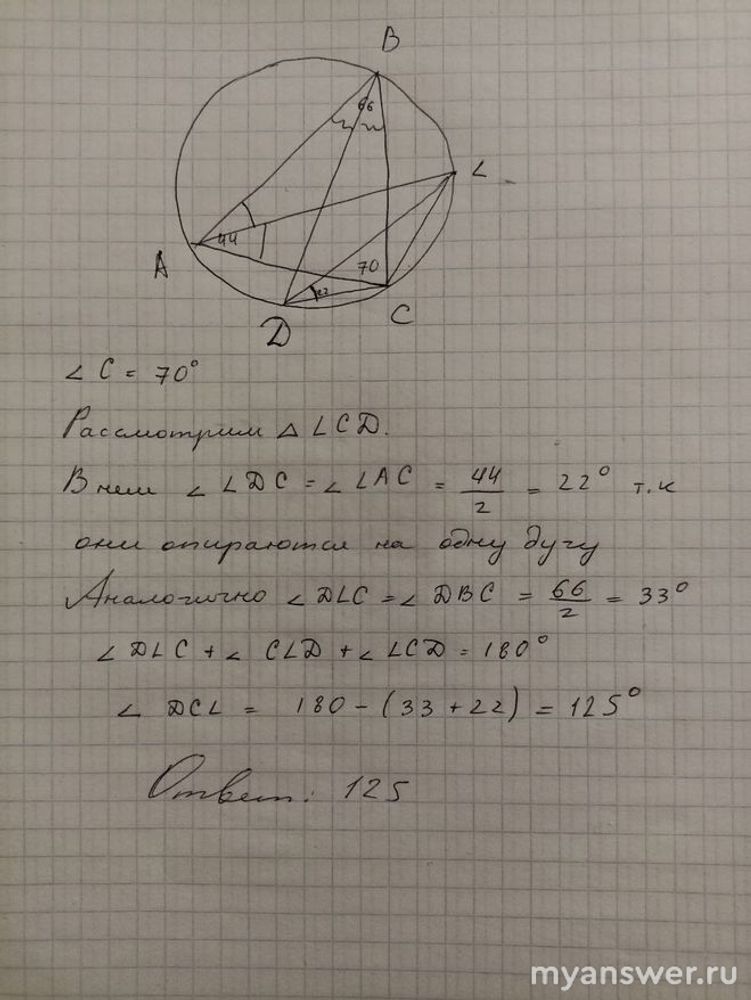 B
66
L
44
A
70
22
D
C
∠ C = 70°
Рассмотрим △ LCD.
В нем ∠ LDC = ∠ LAC = 44/2 = 22° т.к
они опираются на одну дугу
Аналогично ∠ DLC = ∠ DBC = 66/2 = 33°
∠ DLC + ∠ CLD + ∠ LCD = 180°
∠ DCL = 180 - (33 + 22) = 125°
Ответ: 125
myanswer.ru